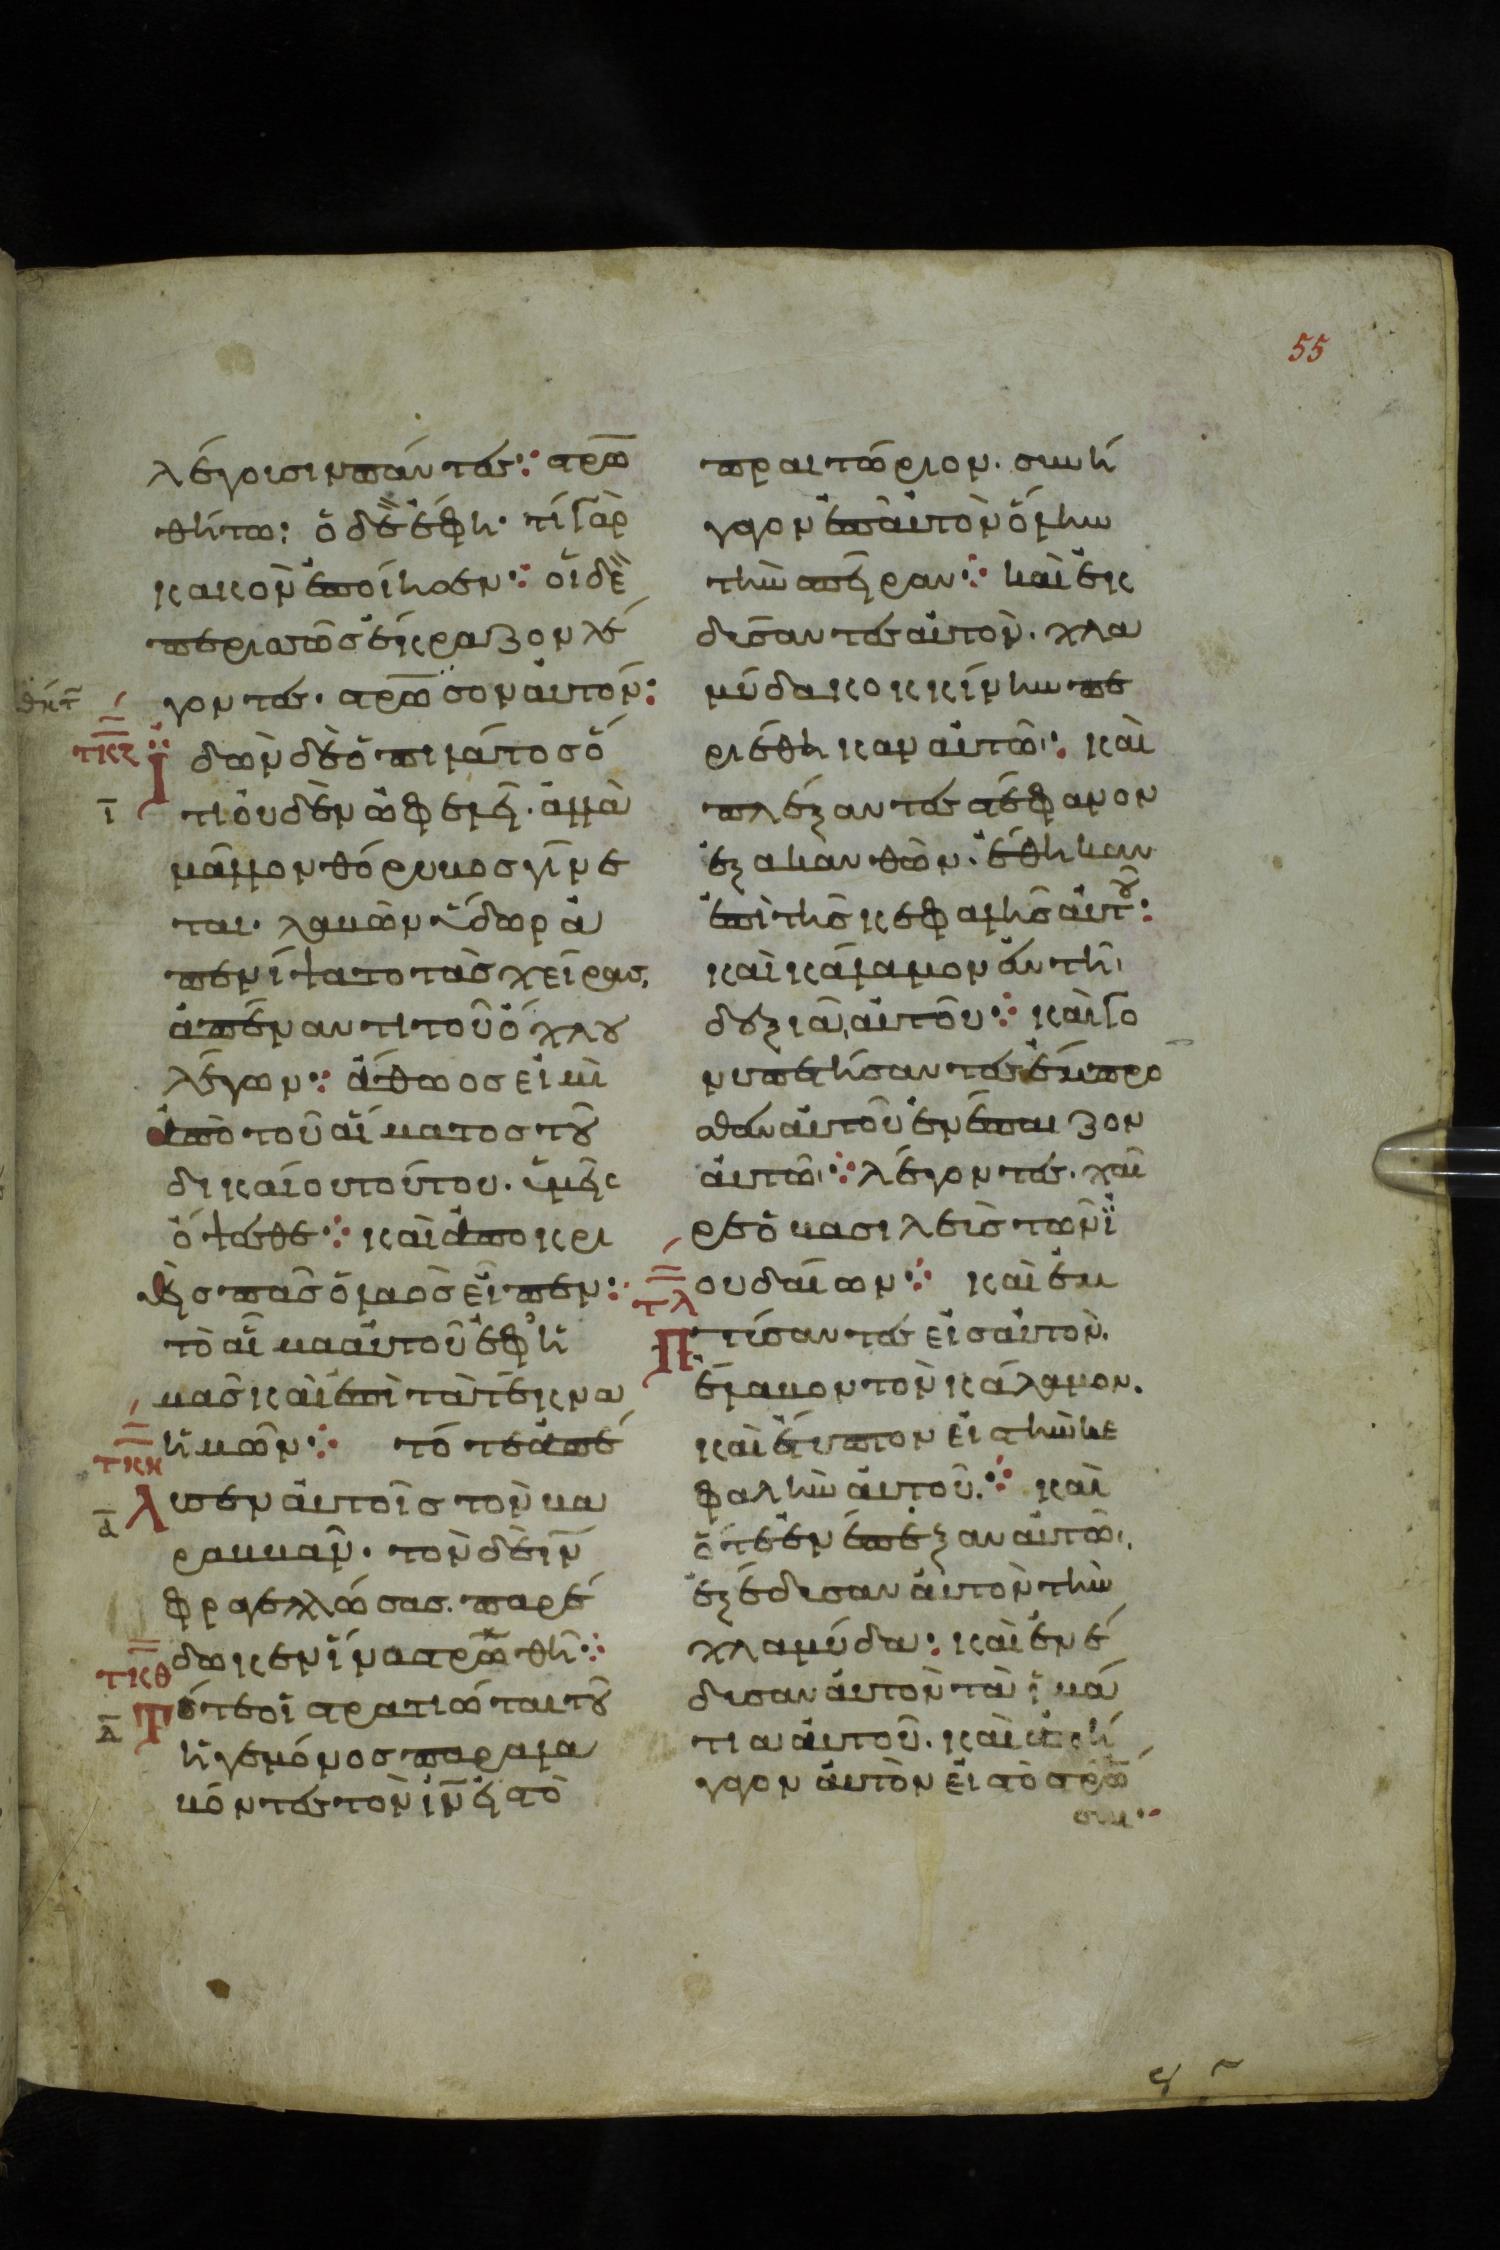 55
λέγουσιν πάντες· στρω
θήτω· ὁ δὲ ἔφη· τί γὰρ
κακὸν ἐποίησεν· οἱ δὲ
περισσῶς ἔκραζον λέ
γοντες· στρωθήτω
γοντες· στρω̅σον αὐτόν:
τκζ
ἰδὼν δὲ ὁ πιλάτος ὅ
ι̅
τι οὐδὲν ὠφελεῖ· ἀλλὰ
μᾶλλον θόρυβος γίνε
ται· λαβὼν ὕδωρ ἀ
πενίψατο τὰς χεῖρας,
ἀπέναντι τοῦ ὄχλου
λέγων· ἀθῶος εἰμὶ
ἀπὸ τοῦ αἵματος τοῦ
δικαίου τούτου· ὑμεῖς
ὄψεσθε· καὶ ἀποκρι
θεὶς πᾶς ὁ λαὸς εἶπεν·
τὸ αἷμα αὐτοῦ ἐφ' ἡ
μᾶς καὶ ἐπὶ τὰ τέκνα
τκη
ἡμῶν· τότε ἀπέ
α̅
λυσεν αὐτοῖς τὸν βα
ραββᾶν· τὸν δὲ ι̅ν̅
φραγελλώσας· παρέ
δωκεν ἵνα στρω̅θῇ·
τκθ
δ̅
Τότε οἱ στρατιῶται τοῦ
ἡγεμόνος παραλα
βόντες τὸν ι̅ν̅ εἰς τὸ
πραιτώριον· συνή
γαγον ἐπ' αὐτὸν ὅλην
τὴν σπεῖραν· καὶ ἐκ
δύσαντες αὐτὸν· χλα
μύδα κοκκίνην πε
ριέθηκαν αὐτῶ· καὶ
πλέξαντες στέφανον
ἐξ ἀκανθῶν· ἔθηκαν
ἐπὶ τῆς κεφαλῆς αὐτοῦ:
καὶ κάλαμον ἐν τῇ
δεξιᾷ αὐτοῦ· καὶ γο
νυπετήσαντες ἔμπρο
σθεν αὐτοῦ ἐνέπαιζον
αὐτῶ· λέγοντες· χαῖ
ρε ὁ βασιλεὺς τῶν ἰ
τλ
ουδαίων· καὶ ἐμ
πτύσαντες εἰς αὐτὸν·
ἔλαβον τὸν κάλαμον·
καὶ ἔτυπτον εἰς τὴν κε
φαλὴν αὐτοῦ· καὶ
ὅτε ἐνέπαιξαν αὐτῶ·
ἐξέδυσαν αὐτὸν τὴν
χλαμύδα· καὶ ἐνέ
δυσαν αὐτὸν τὰ ἱμά
τια αὐτοῦ· καὶ ἀπή
γαγον αὐτὸν εἰς τὸ στρω̅